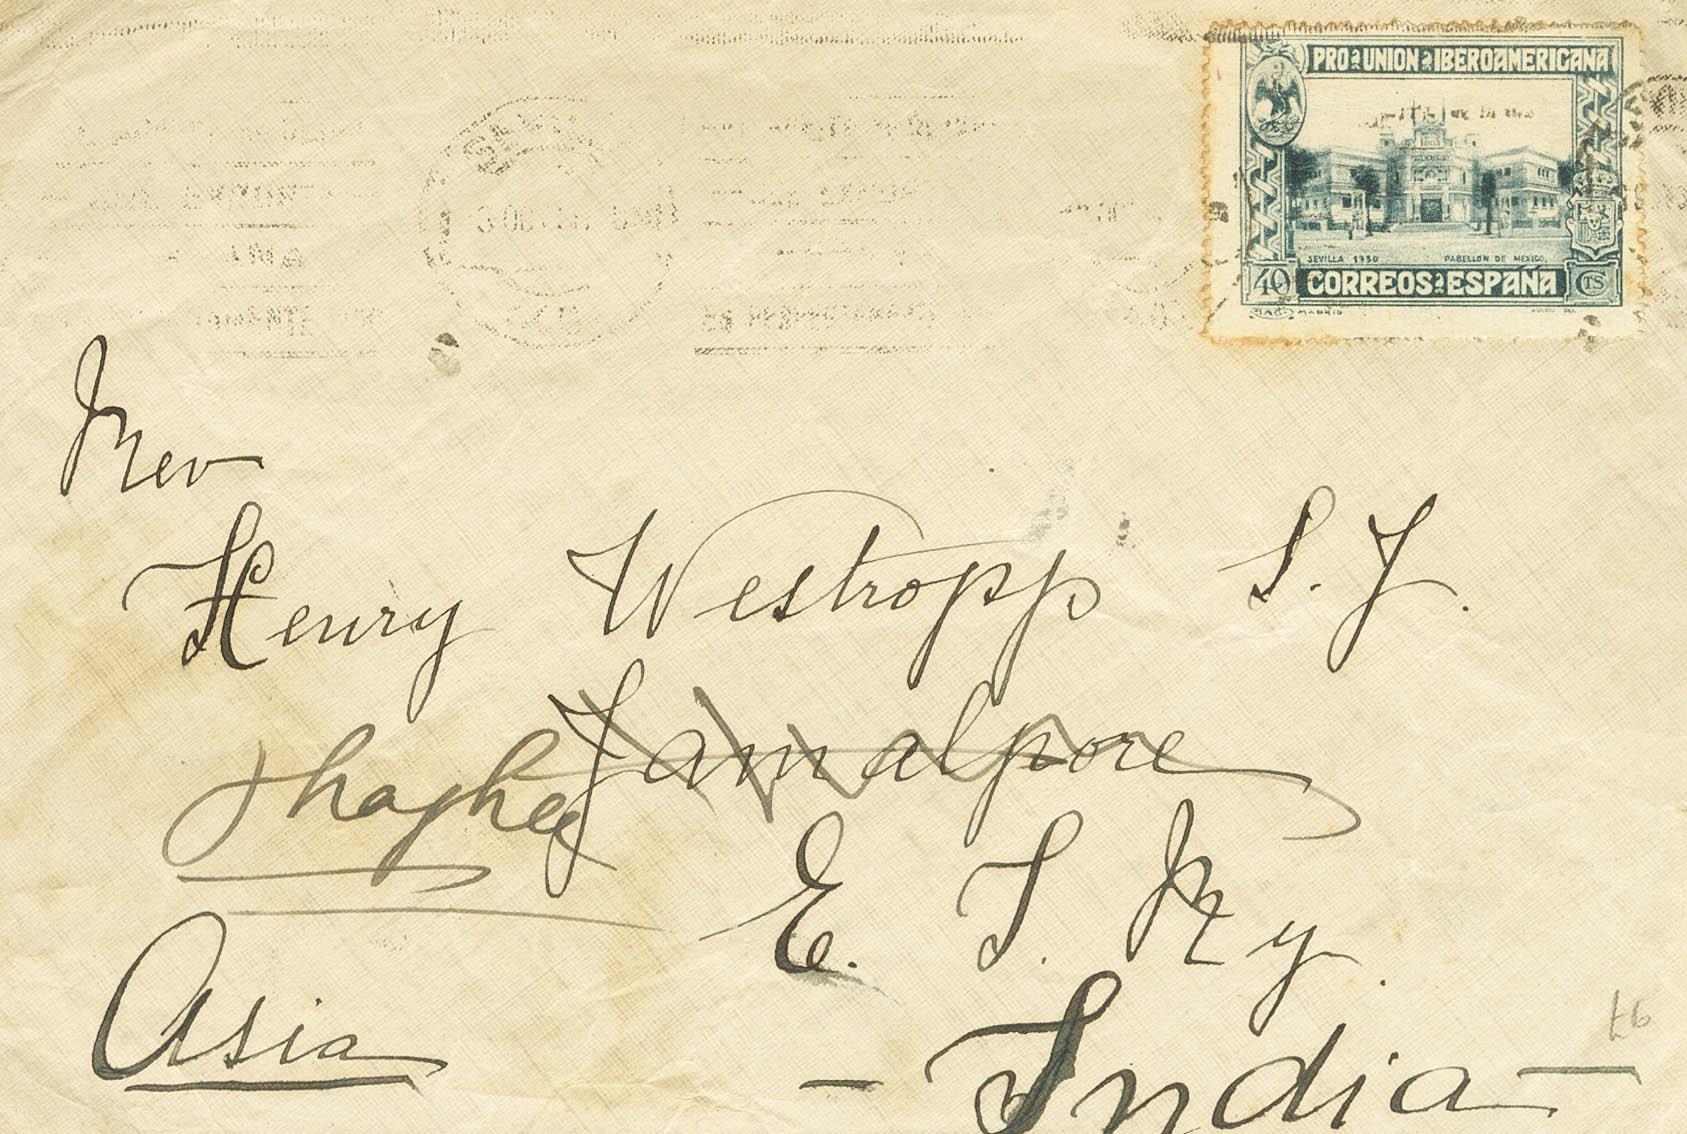 PRO UNION IBEROAMERICANA
SEVILLA 1930 PABELLON DE MEXICO.
40 CORREOS ESPAÑA CTS
MADRID
Rev
Henry Westropp S. J.
Jamalpore
E. I. Ry.
Asia
- India -